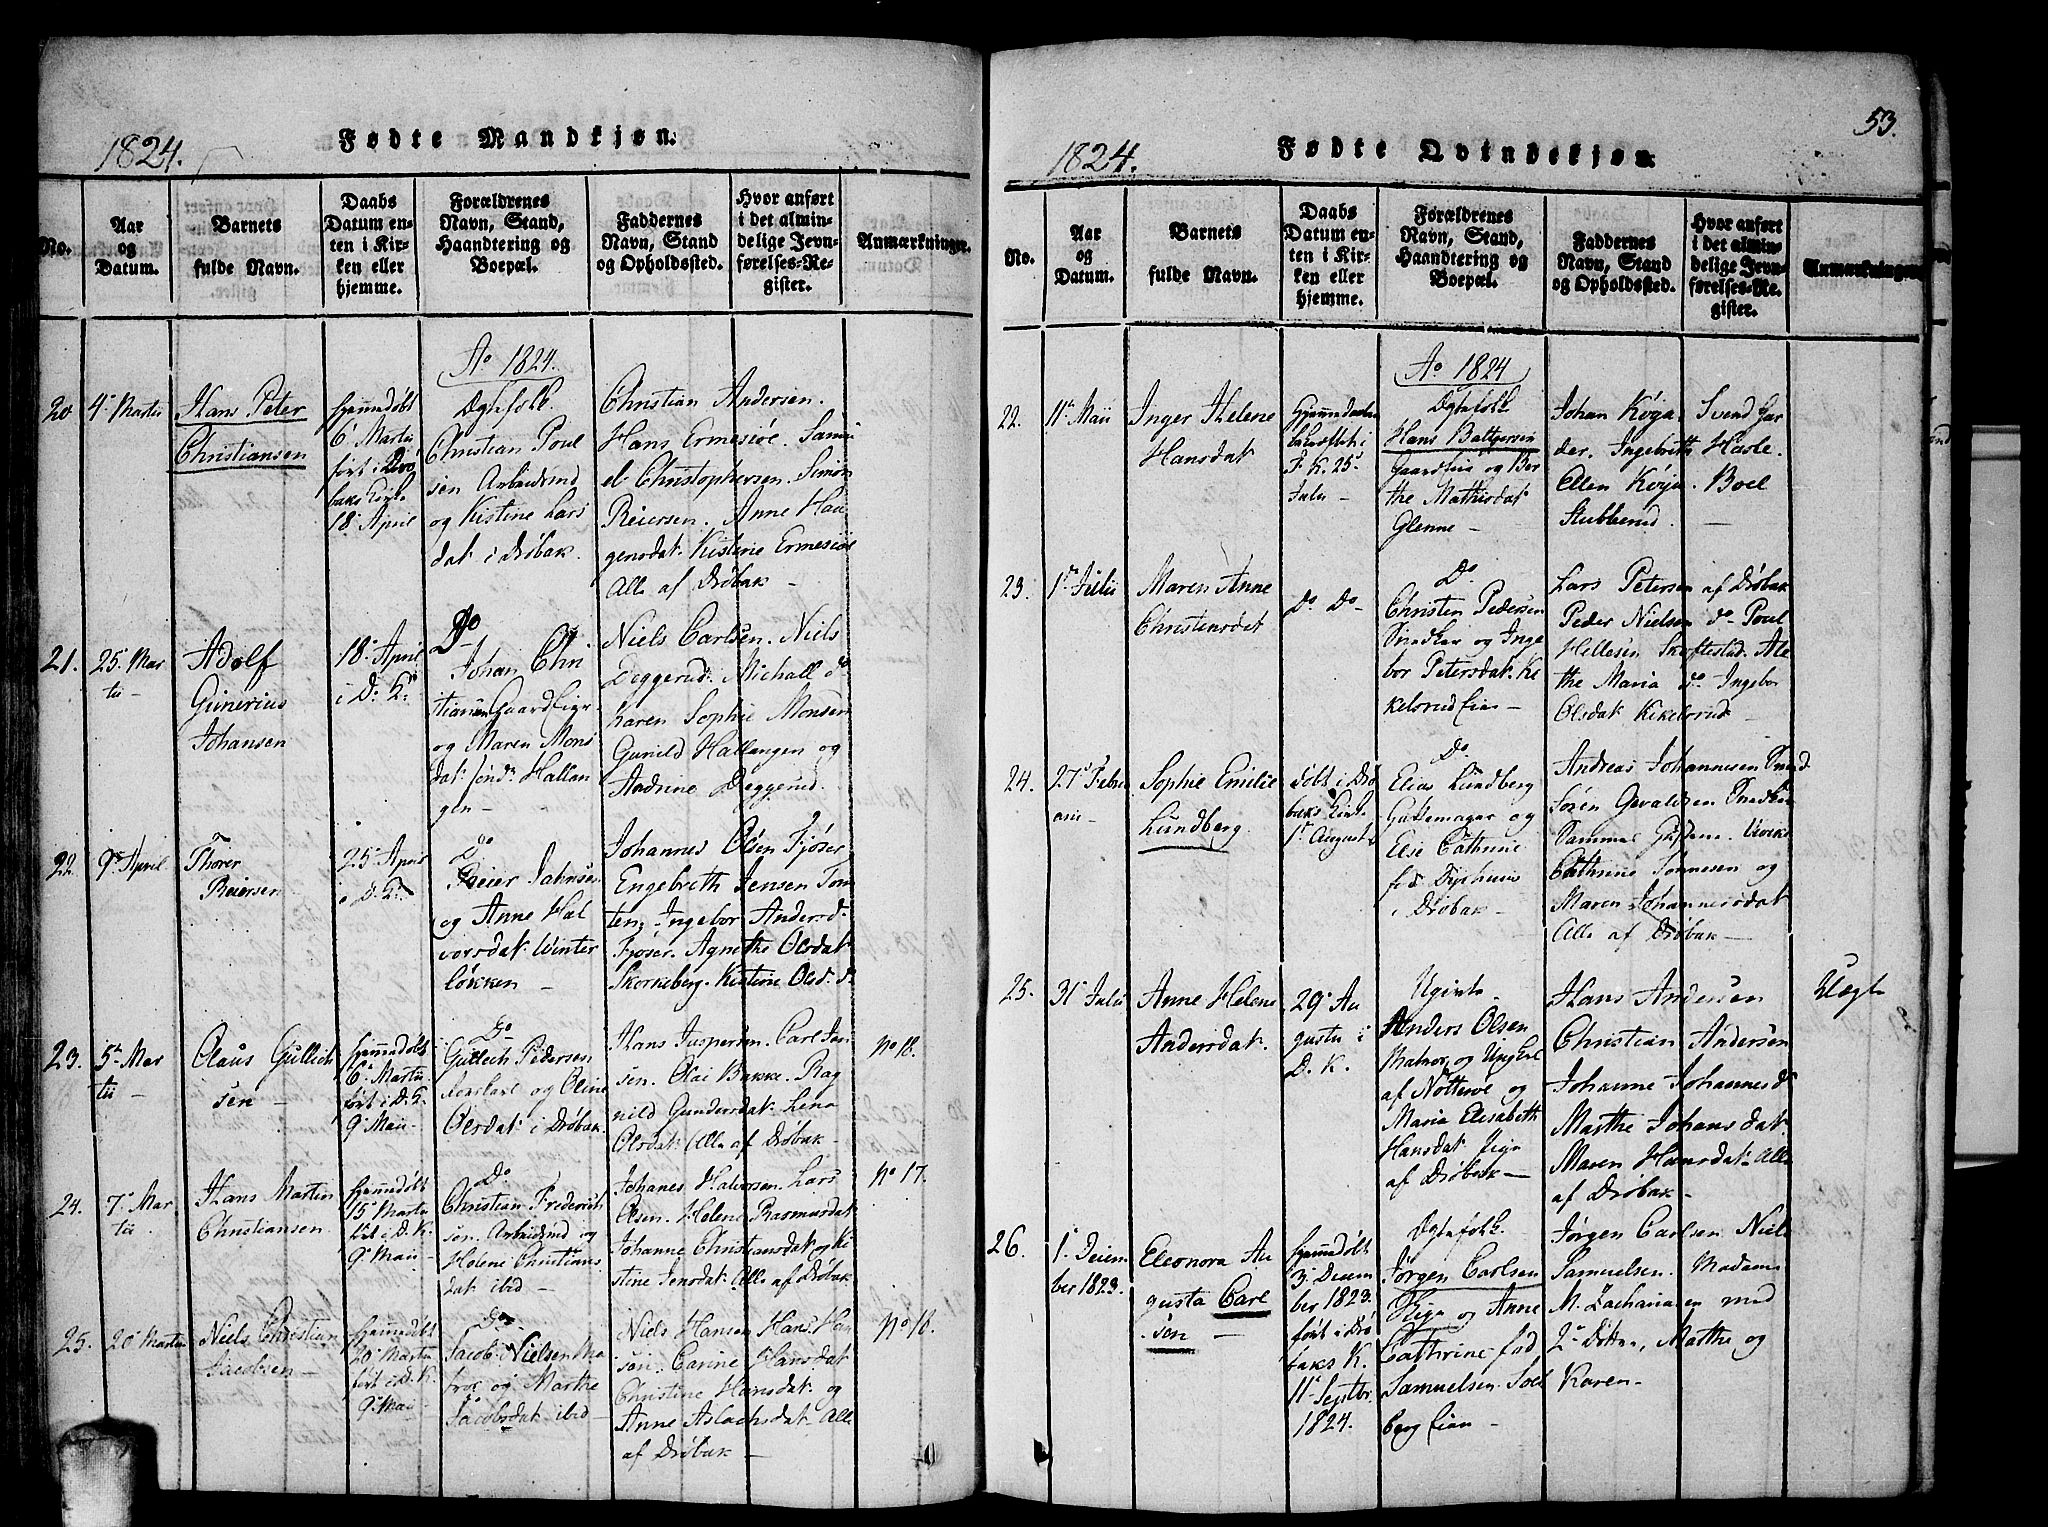 1824.
Fødte Mandkjøn.
No.
Aar
og
Datum.
Barnets
fulde Navn.
Daabs
Datum en-
ten i Kir-
ken eller
hjemme.
Forældrenes
Navn, Stand,
Haandtering og
Boepæl.
Faddernes
Navn, Stand
og Opholdssted.
Hvor anført
i det almin-
delige Jevn-
førelses-Re-
gister.
Anmærkninger.
Ao 1824.
20
4de Martii
Hans Peter
Christiansen
hjemmedøbt
6te Martii
ført i Drø
baks Kirke
18de April
Ægtefolk
Christian Poul
sen Arbeidsmd
og Kistine Lars
dat i Drøbak.
Christian Andersen.
Hans Ermesiøe. Samu
el Christophersen. Simon
Reiersen. Anne Hau
gensdat. Kistine Ermesiøe
Alle af Drøbak -
21.
25de Mar
tii -
Adolf
Gunerius
Johansen
18de April
i D. K.
Do
Johan Chri
stiansen Gaard Eier
og Maren Mons
dat søndr Hallan
gen -
Niels Carlsen. Niels
Deggerud. Michall do
Karen Sophie Monsen
Gunild Hallangen og
Andrine Deggerud.
22
9de April
Thorer
Reiersen
25de April
i D. K.
Do
Reier Jahnsen
og Anne Hal
vorsdat Winter
løkken -
Johannes Olsen Fjøser
Engebreth Jensen Tom
ten. Ingebor Andersd.
Fjøser. Agnethe Olsdat
Skorkeberg. Kistine Olsd. do
23.
5te Mar
tii -
Olaus Gullich
sen -
hjemmedøbt
6te Martii
ført i D. K.
9de Maii -
Do
Gullich Pedersen
og Oline
Olsdat i Drøbak.
Hans Jespersen. Carl Jan
sen. Olai Bakke. Rag
nild Gundersdat. Lena
Olsdat Alle af Drøbak -
No 18.
24.
7de Mar
tii
Hans Martin
Christiansen
hjemmedøbt
15de Martii
ført i D. K.
9de Maii -
Do
Christian Frederich
sen. Arbeidsmd og
Helene Christians
dat ibid -
Johanes Halvorsen. Lars
Olsen. Helene Rasmusdat
Johanne Christiansdat og Ki
stine Jensdat Alle af Drøbak
No 17.
25.
20de Martii
Niels Christian
Jacobsen -
hjemmedøbt
20de Martii
ført i D. K.
9de Maii -
Do
Jacob Nielsen Ma
tros og Marthe
Jacobsdat ibid -
Niels Hansen Hans Han
sen. Carine Hansdat
Christine Hansdat og
Anne Aslachsdat Alle
af Drøbak -
No 18.
53.
1824.
Fødte Qvindekjøn.
No.
Aar
og
Datum.
Barnets
fulde Navn.
Daabs
Datum en-
ten i Kir-
ken eller
hjemme.
Forældrenes
Navn, Stand,
Haandtering og
Boepæl.
Faddernes
Navn, Stand
og Opholdssted.
Hvor anført
i det almin-
delige Jevn-
førelses-Re-
gister.
Anmærkninger
Ao 1824
22.
11te Maii
Inger Helene
Hansdat
hjemmedaaben
F. K. 25de
Julii -
Ægtefolk
Hans Baltzersen
Gaardeier og Ber
the Mathisdat
Glenne -
Johan Køja. Svend Har
der. Ingebreth Hasle.
Ellen Køja. Boel
Stubberud. -
23.
1te Julii
Maren Anne
Christensdat
Do Do
Do
Christen Pedersen
Snedker og Inge
bor Petersdat. Ki
kelsrud Eier -
Lars Petersen af Drøbak
Peder Nielsen do Poul
Hellesen Skoftestad. Ale
the Maria do Ingebor
Olsdat Kikelsrud -
24.
27de Febru
arii -
Sophie Emilie
Lundberg.
døbt i Drø
baks Kirke
1te August
Do
Elias Lundberg
Guldsmager og
Else Cathrine
fød
i Drøbak -
Andreas Johannesen
Søren Gevaldsen Snedker
Cathrine Sonnesen og
Maren Johannesdat
Alle af Drøbak -
25.
31te Julii
Anne Helene
Andersdat.
29de Au
gustii i
D. K.
Ugivte
Anders Olsen
Matros og Ung Karl
af
Maria Elisabeth
Hansdat Pige
af Drøbak -
Hans Andersen
Christian Andersen
Johanne Johannesd
Marthe Johansdat
Maren Hansdat Alle
af Drøbak -
Uægte
26.
1te Decem
ber 1823.
Eleonora Au
gusta Carl
sen -
hjemmedøbt
3de Decem
ber 1823.
ført i Drø
baks K.
11te Septbr
1824.
Ægtefolk
Jørgen Carlsen
og Anne
Cathrine fød
Samuelsen. Sol
berg Eier -
Jørgen Carlsen Niels
Samuelsen. Madame
M. Zachariasen med
2de Døttre, Mathe og
Karen -